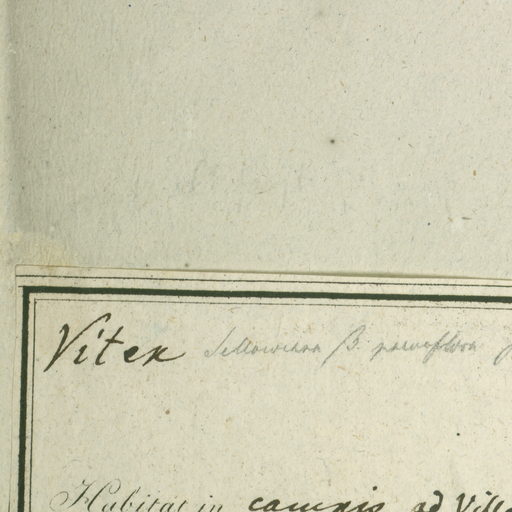 Vitex Sellowiana β. parviflora
Habitat in campis ad Villa